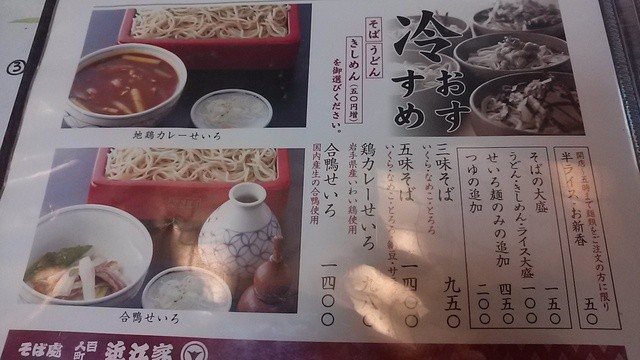 冷
おすすめ
そば
うどん
きしめん(五〇円増)
を御選びください。
開店~五時まで麺類をご注文の方に限り
半ライス・お新香
五〇
そばの大盛
一五〇
うどん・きしめん・ライス大盛
一〇〇
せいろ麺のみの追加
四五〇
つゆの追加
二〇〇
三味そば
九五〇
いくら・なめこ・とろろ
五味そば
一四〇〇
いくら・なめこ・とろろ
鶏カレーせいろ
岩手県産いわい鶏使用
合鴨せいろ
一四〇〇
国内産生の合鴨使用
地鶏カレーせいろ
合鴨せいろ
そば處
百人町
近江家
③